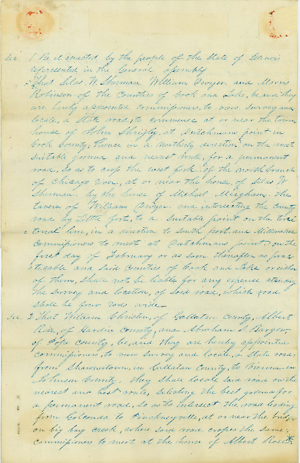 Sec. 1 Be it enacted by the people of the State of Illinois
represented in the General Assembly
That Silas W. Sherman William and Morris
Robinson of the Counties of Cook and Lake, be and they
are hereby appointed commissioners, to view, survey and
locate, a State road, to commence at or near the tavern
house of John at Dutchmans point in
Cook County, thence in a northerly direction on the most
suitable ground and nearest route, for a permanent
road. So as to cross the west fork, of the north branch
of Chicago river, at or near the house of Silas W.
Sherman by the house of Michael the
tavern of William and intersecting the county
road by Little fort, to a suitable point on the
line, in a direction to South port and Milwaukee
Commissioners to meet at Dutchmans point, on the
first day of February or as soon thereafter as prac
ticable and said Counties of Cook and Lake or either
of them, shall not be liable for any expense attending
the survey and location, of said road, which road
shall be four rods wide.
Sec. 2 That William of Gallatin County, Albert
of Hardin County, and Abraham S.
of Pope county, be, and they are hereby appointed
commissioners, to view survey and locate, a State road
from Shawneetown, in Gallatin County, to
Johnson County. they shall locate said road on the
nearest and best route, taking the best ground for
a permanent road, so as to intersect the road leading
from Golconda to Pinckneyville, at or near the bridge
on big bay creek, where said road crosses the same.
commissioners to meet at the house of Albert